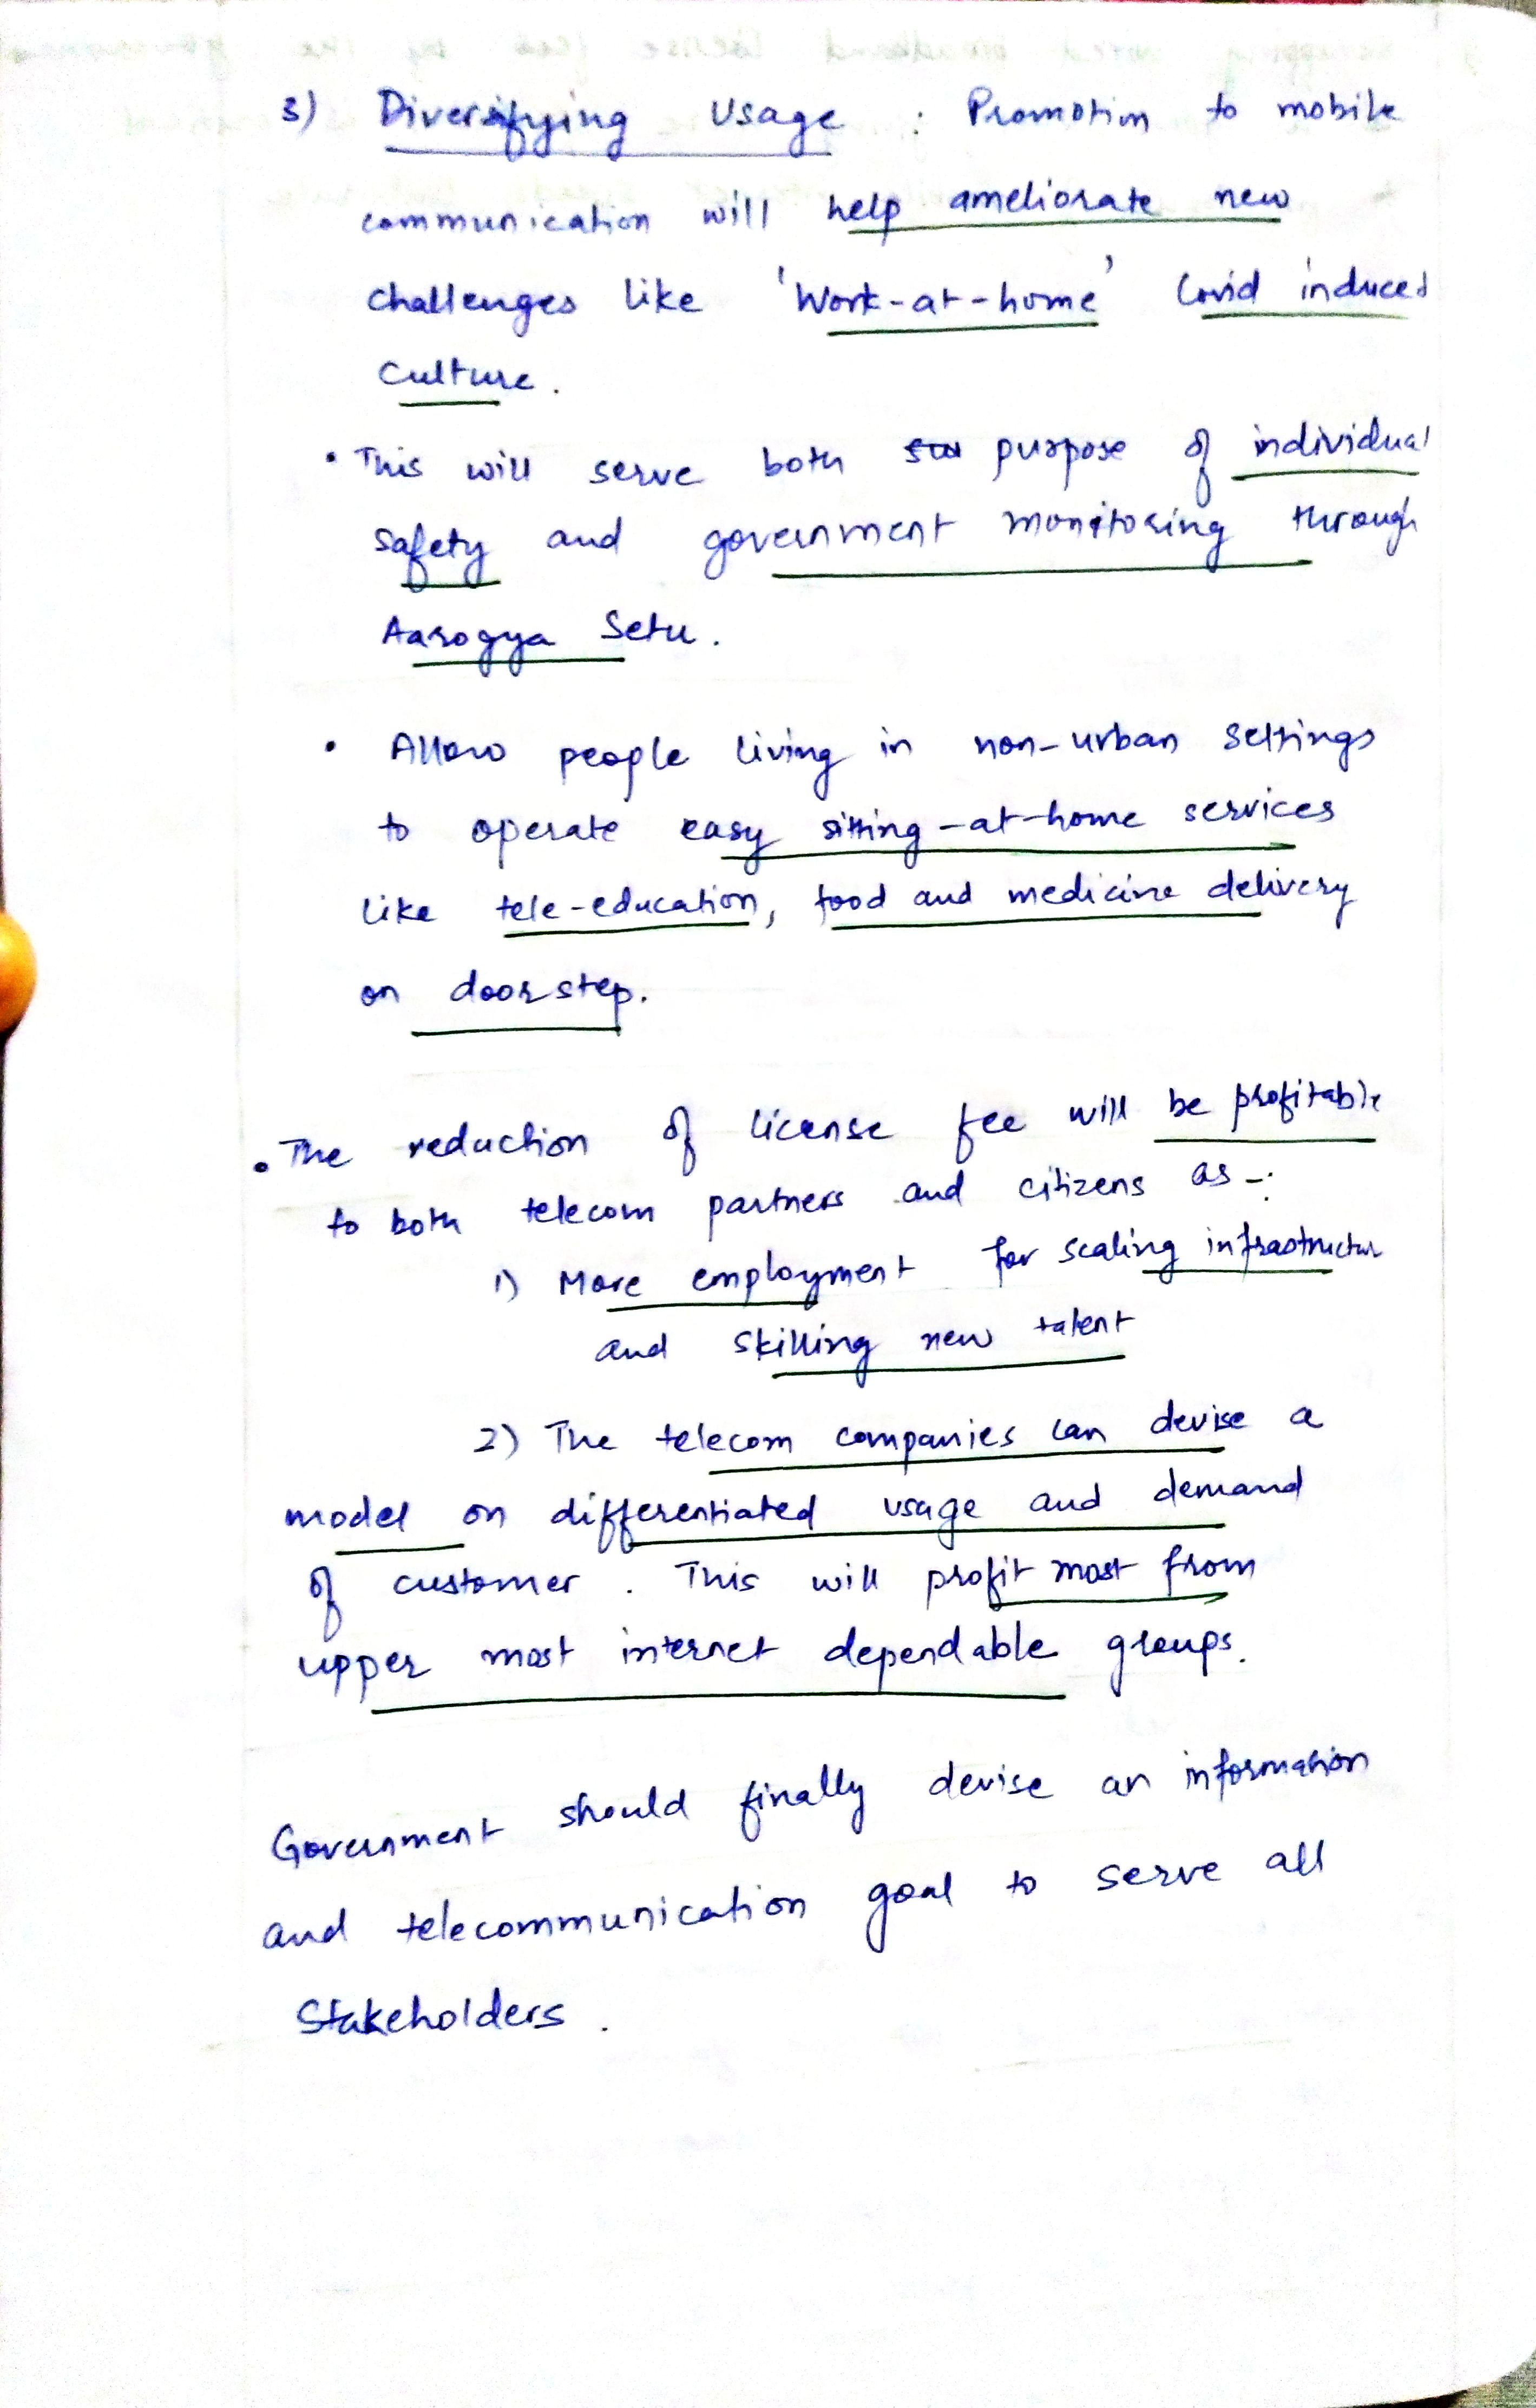 3) Diversifying Usage : Promotion to mobile
communication will help ameliorate new
challenges like 'Work-at-home' Covid induced
culture.
• This will serve both purpose of individual
safety and government monitoring through
Aarogya Setu.
• Allow people living in non-urban settings
to operate easy sitting-at-home services
like tele-education, food and medicine delivery
on doorstep.
• The reduction of license fee will be profitable
to both telecom partners and citizens as -:
1) More employment for scaling infrastructur
and skilling new talent
2) The telecom companies can devise a
model on differentiated usage and demand
of customer. This will profit most from
upper most internet dependable groups.
Government should finally devise an information
and telecommunication goal to serve all
Stakeholders.